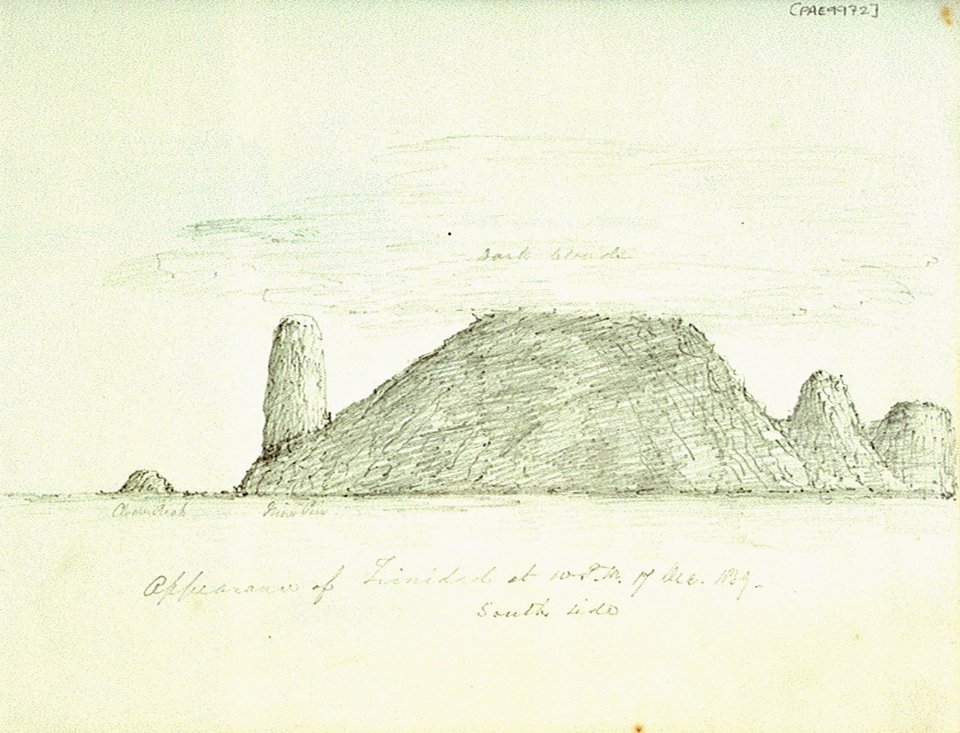 [PAE9972]
Dark Clouds
Nine Pin
Appearance of Trinidad at 10 P.M. 17 Dec. 1839.
South side